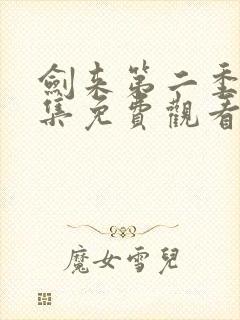 劍来第二季
集免費觀看
魔女雪兒